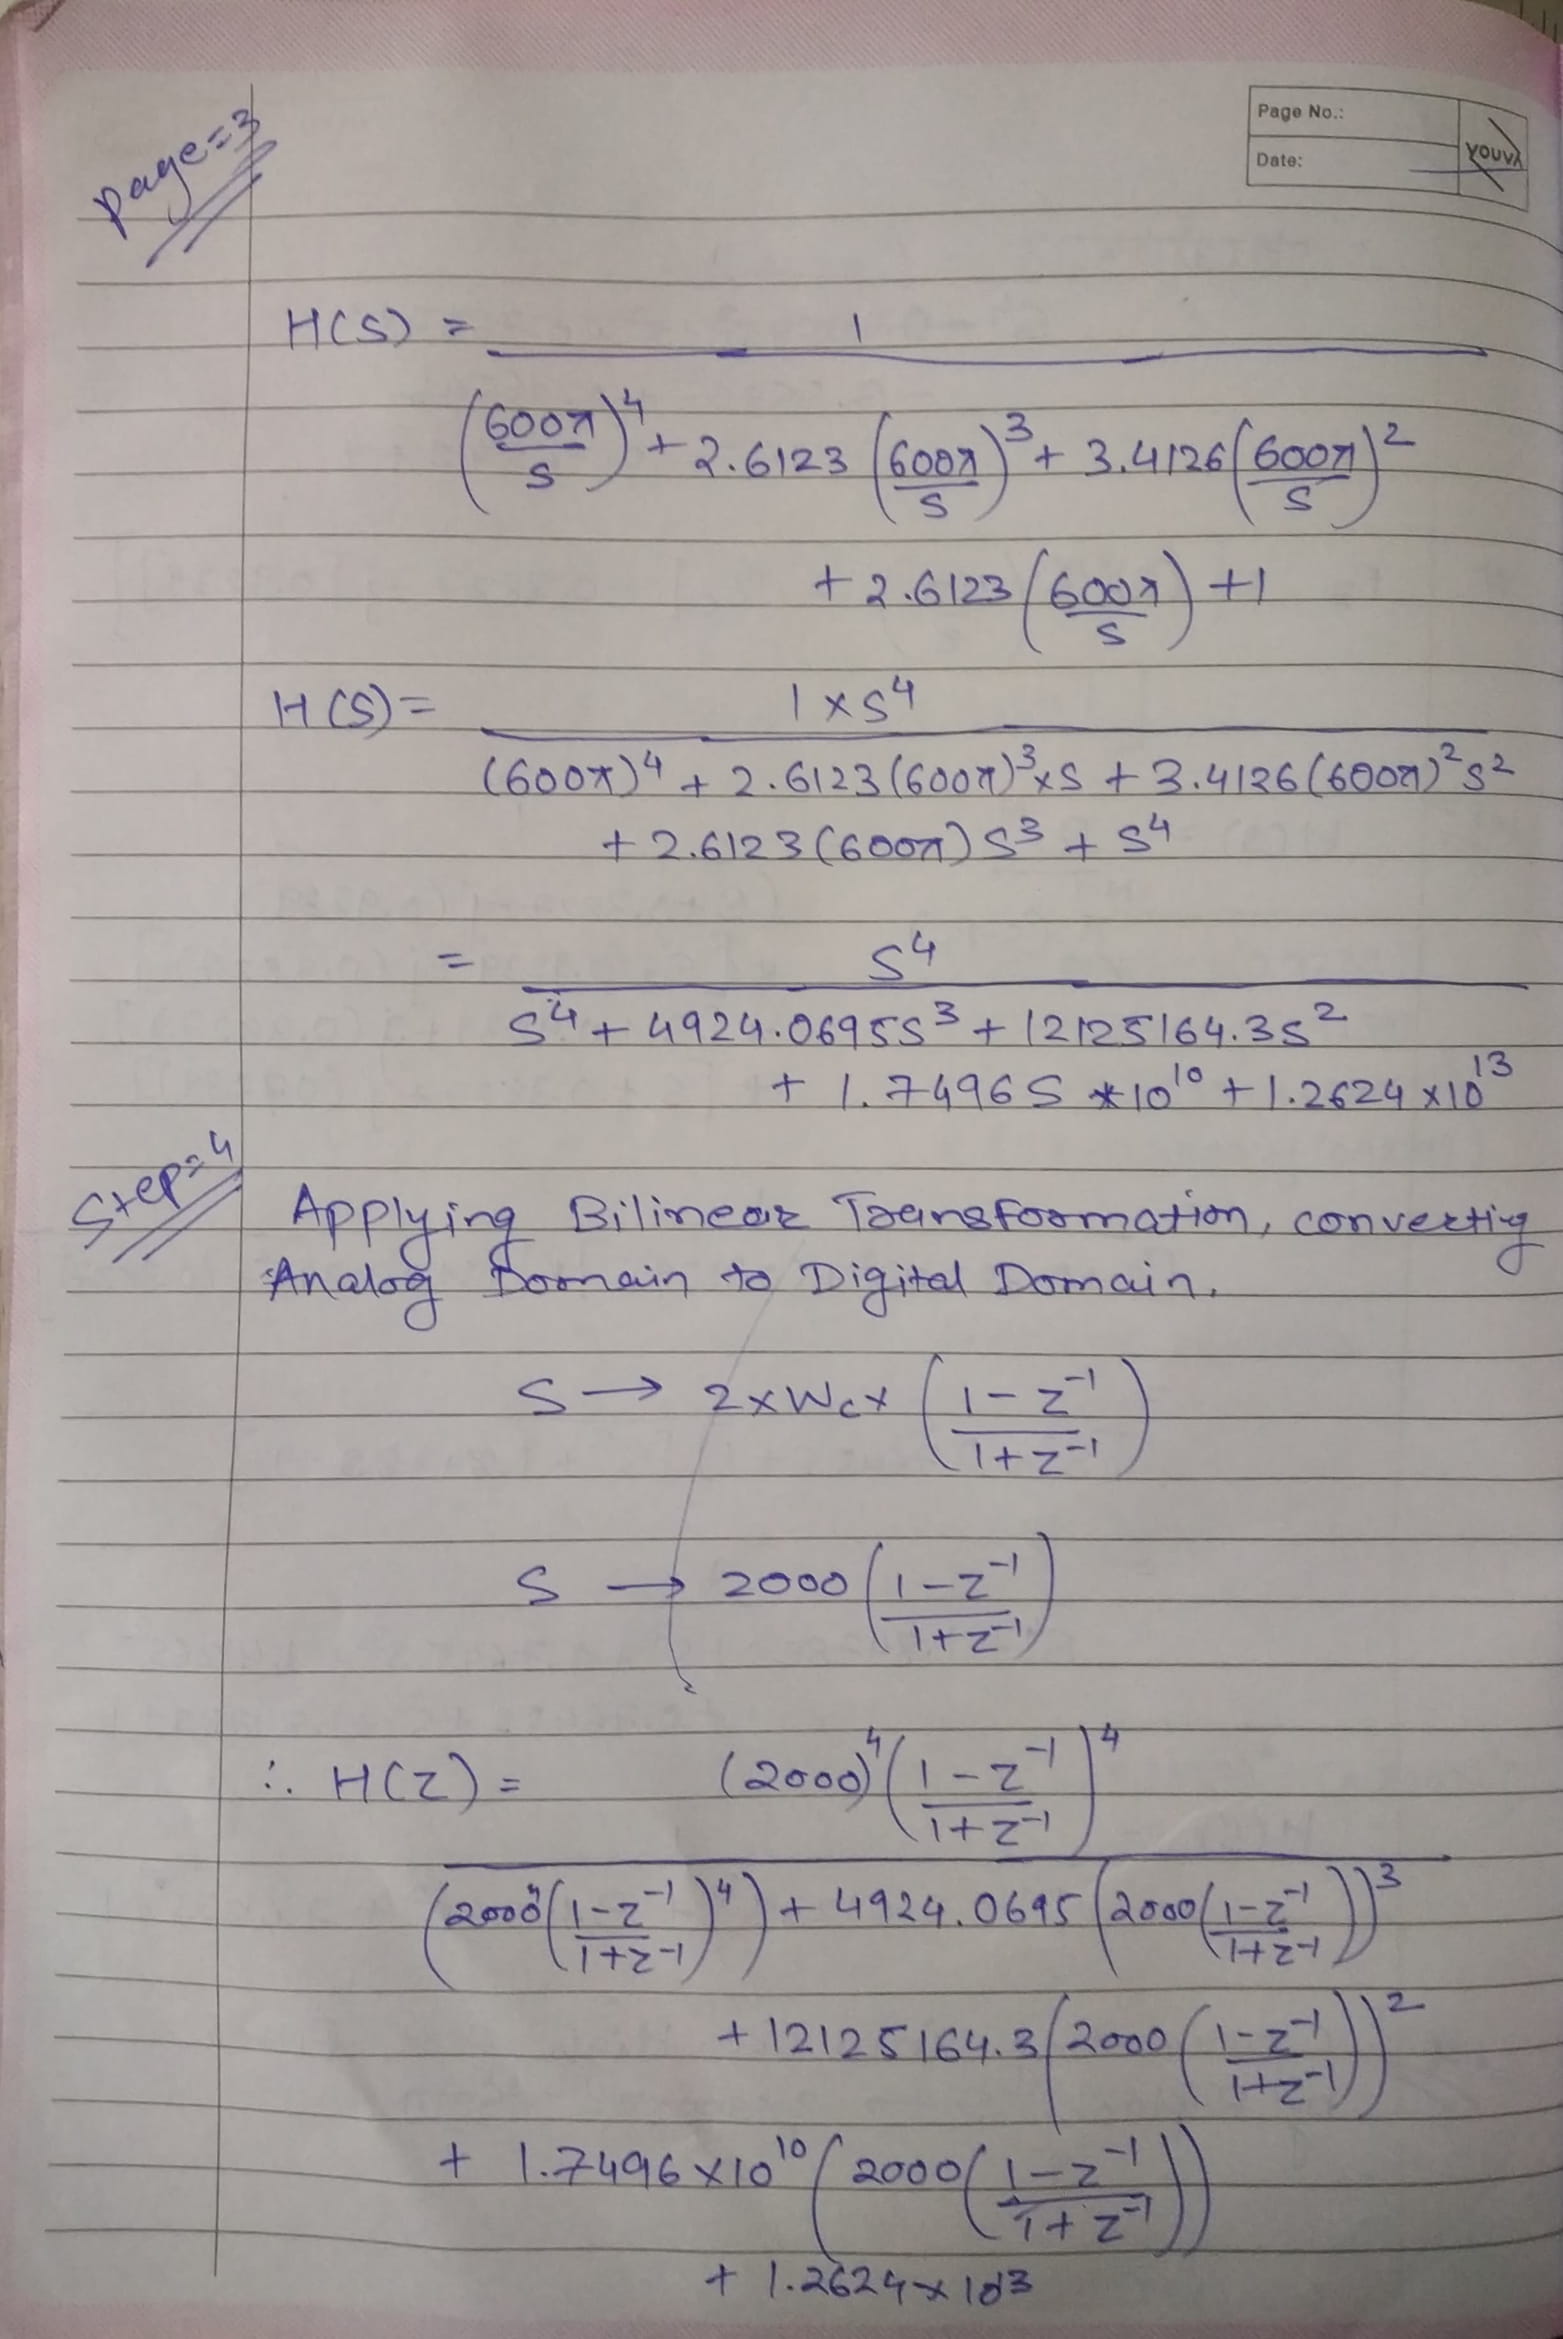 Page=3
Page No.:
Date:
YOUVA
H(S) = 1
(600π/s)^4 + 2.6123 (600π/s)^3 + 3.4126 (600π/s)^2
+ 2.6123 (600π/s) +1
H(S) = 1 x s^4
(600π)^4 + 2.6123(600π)^3 x S + 3.4126(600π)^2 s^2
+ 2.6123 (600π) s^3 + s^4
= s^4
s^4 + 4924.0695s^3 + 12125164.3s^2
+ 1.7496 S * 10^10 + 1.2624 x 10^13
Step=4
Applying Bilinear Transformation, converting
Analog Domain to Digital Domain.
S → 2 x Wc x (1 - z^-1 / 1 + z^-1)
S → 2000 (1 - z^-1 / 1 + z^-1)
∴ H(Z) = (2000)^4 (1 - z^-1 / 1 + z^-1)^4
(2000^4 (1 - z^-1 / 1 + z^-1)^4) + 4924.0695 (2000 (1 - z^-1 / 1 + z^-1))^3
+ 12125164.3 (2000 (1 - z^-1 / 1 + z^-1))^2
+ 1.7496 x 10^10 (2000 (1 - z^-1 / 1 + z^-1))
+ 1.2624 x 10^13